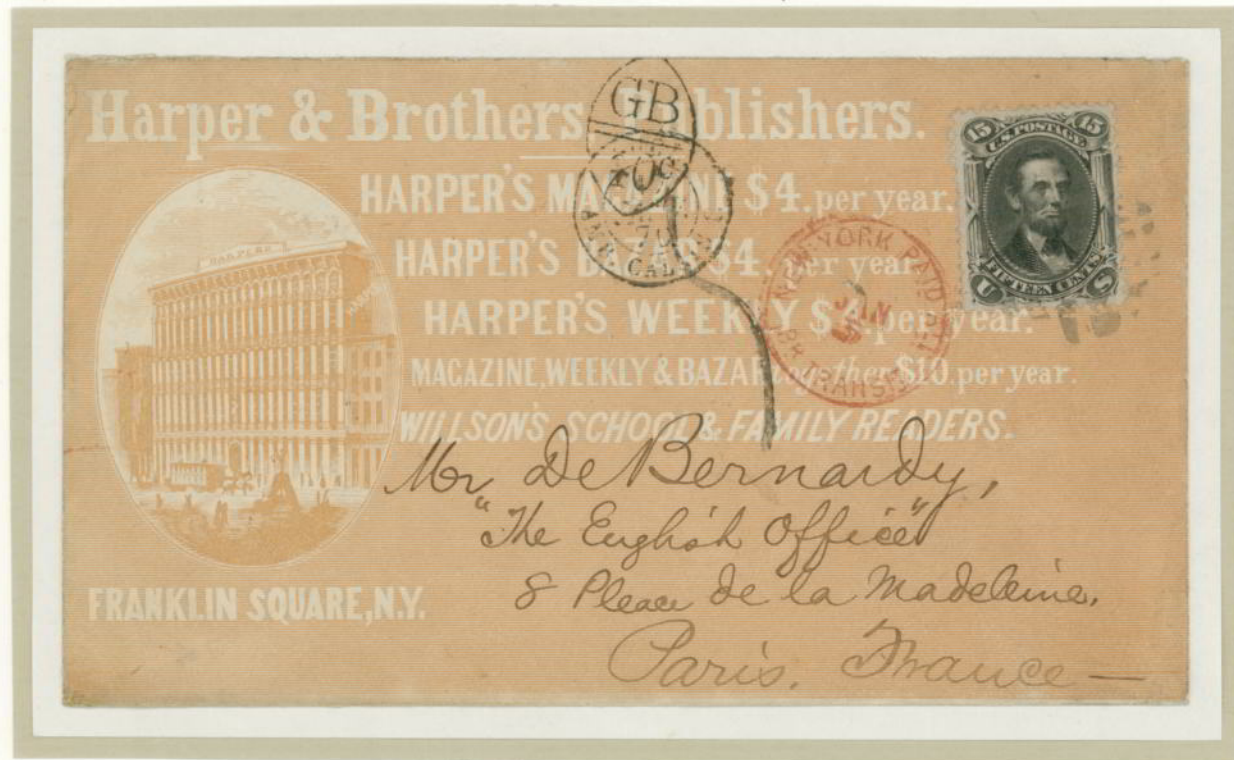 Harper & Brothers blishers.
GB
HARPER'S MAGAZINE $4. per year.
HARPER'S BAZAR $4. per year.
HARPER'S WEEKLY $4. per year.
MAGAZINE, WEEKLY & BAZAR together $10. per year.
WILLSON'S SCHOOL & FAMILY READERS.
FRANKLIN SQUARE, N.Y.
HARPERS
AMB. CALAIS
15 U.S. POSTAGE. 15
U FIFTEEN CENTS S
NEW YORK PAID
JAN
TRANSIT
Mr De Bernardy,
"The English Office"
8 Place de la Madeleine.
Paris. France —